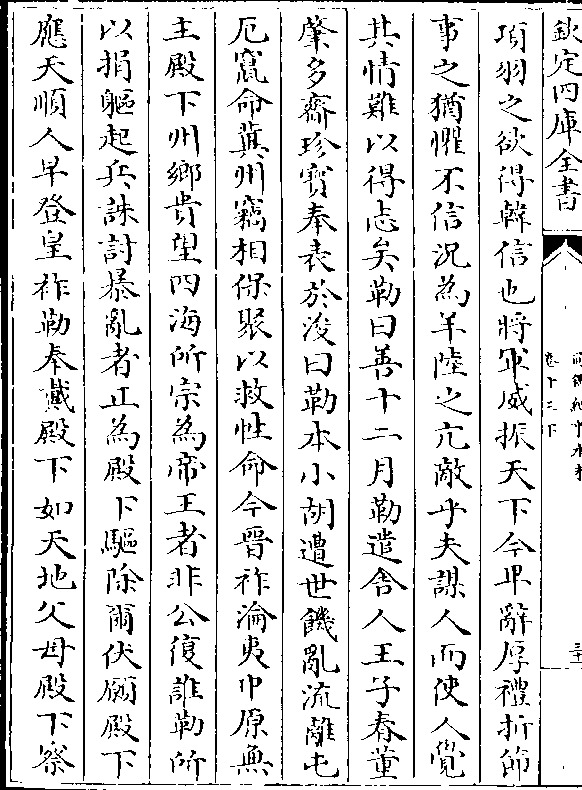 欽定四庫全書
卷十三下
項羽之欲得韓信也將軍威振天下今卑辭厚禮折節
事之猶懼不信況為羊陸之亢敵乎夫謀人而使人覺
其情難以得志矣勒曰善十二月勒遣舍人王子春董
肇多齎珍寳奉表於浚曰勒本小胡遭世饑亂流離屯
厄竄命冀州竊相保聚以救性命今晉祚淪夷中原無
主殿下州鄉貴望四海所宗為帝王者非公復誰勒所
以捐軀起兵誅討暴亂者正為殿下驅除爾伏願殿下
應天順人早登皇祚勒奉戴殿下如天地父母殿下察